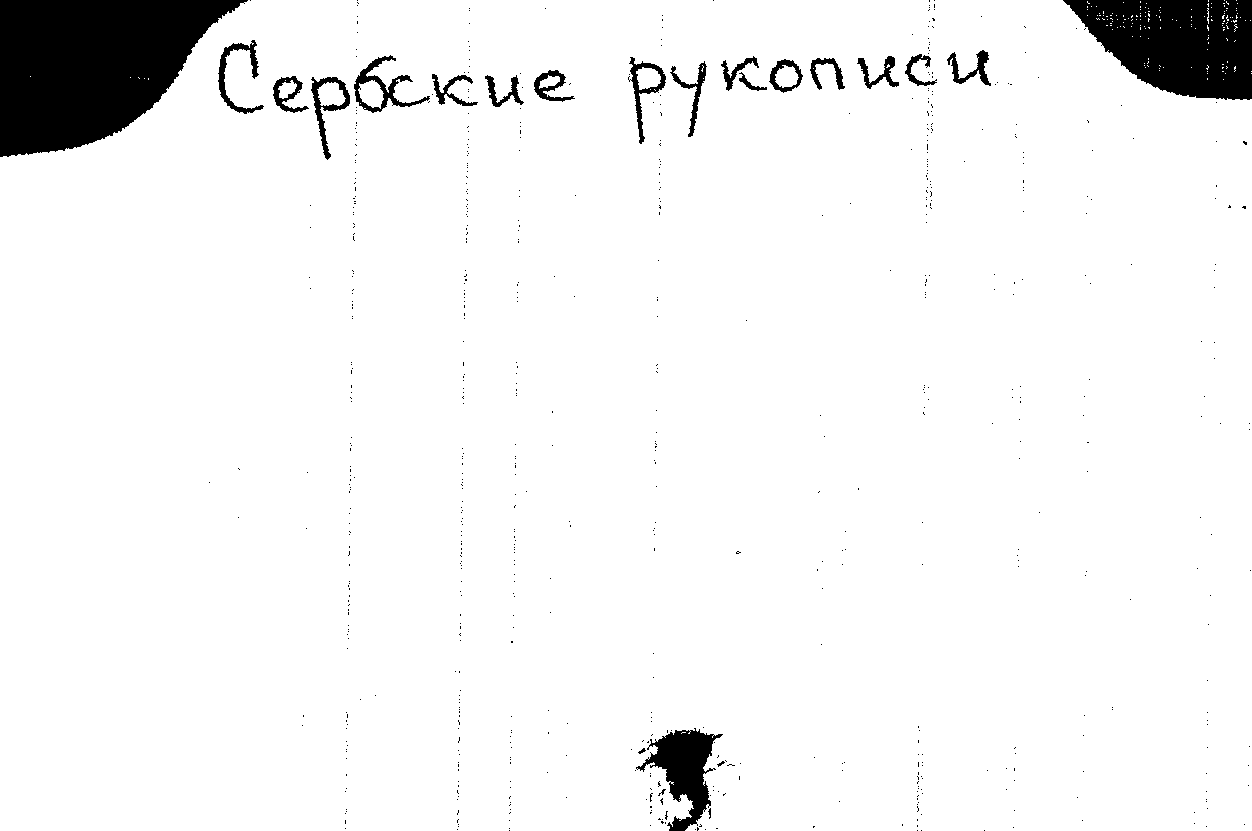 Сербские рукописи